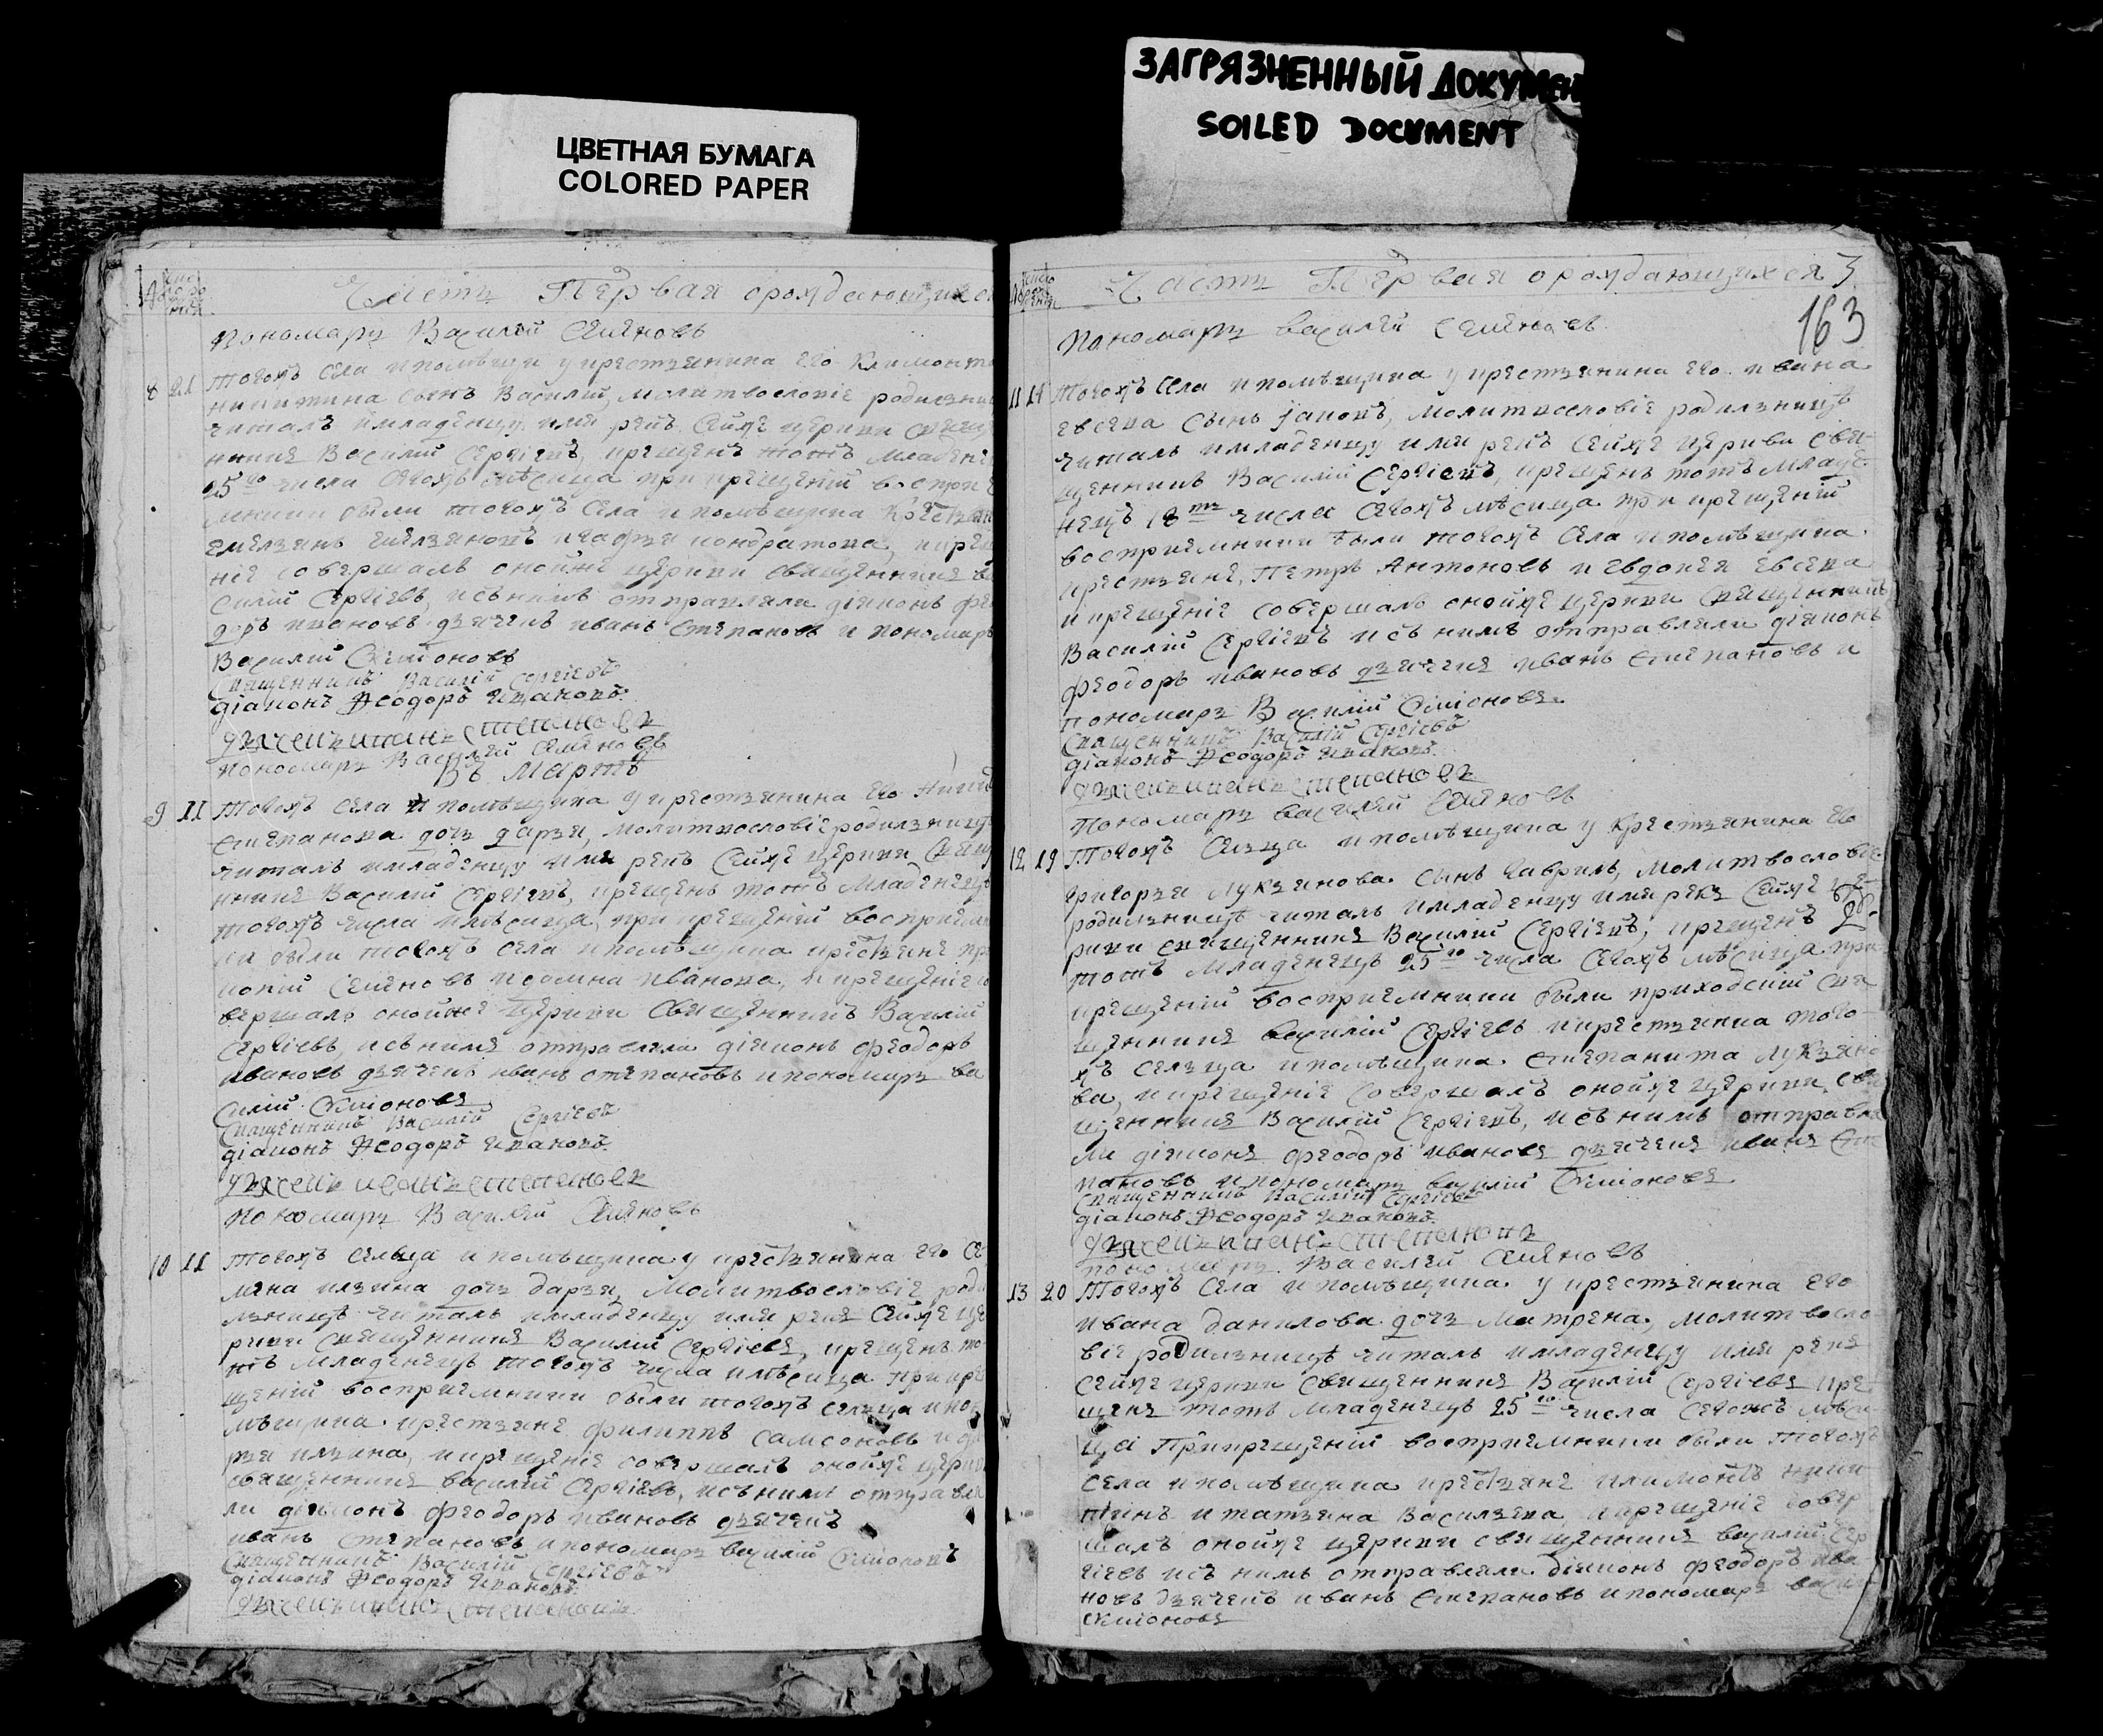 ЦВЕТНАЯ БУМАГА
COLORED PAPER
ЗАГРЯЗНЕННЫЙ ДОКУМЕН
SOILED DOCUMENT
Часть Первая ораждающихся
пономарь Василий Семеновъ
8 21 тогожъ села и помѣщика у крестьянина его Климонта
никитина сынъ Василий, молитвословіе родилни
читалъ имладенцу имя рекъ сейже церкви свяще
нникъ Василий Сергіевъ, крещенъ тотъ младене
25го числа сегожъ мѣсяца при крещеніи воспри
мники были тогожъ села и помѣщика
емельянъ емельяновъ кондратова, и креще
ніе совершалъ онойже церкви священникъ ва
силій Сергіевъ, и снимъ отправляли діаконъ фео
доръ ивановъ дьячекъ иванъ степановъ и пономарь
Василий Симіоновъ
Священникъ Василій Сергіевъ
діаконъ Ѳеодоръ Ивановъ
дьячекъ иванъ степановъ
пономарь Василей Семеновъ
Въ Мартѣ
9 11 Тогожъ села и помѣщика у крестьянина его
степанова дочь дарья, молитвословіе родильницѣ
читалъ имладенцу имя рекъ сейже церкви свяще
нникъ Василий Сергіевъ, крещенъ тотъ младенецъ
тогожъ числа имѣсяца, при крещеніи восприемни
ки были тогожъ села и помѣщика крестьяне про
копій Семеновъ и домна иванова, и крещеніе со
вершалъ онойже церкви Священникъ Василій
Сергіевъ, и снимъ отправляли діаконъ феодоръ
ивановъ дьячекъ иванъ степановъ и пономарь ва
силій Симіоновъ
Священникъ Василій Сергіевъ
діаконъ Ѳеодоръ Ивановъ
дьячекъ иванъ степановъ
пономарь Василей Семеновъ
10 11 Тогожъ сельца и помѣщика у крестьянина его се
мена ильина дочь дарья, молитвословіе роди
льницѣ читалъ имладенцу имя рекъ сейже це
ркви священникъ Василий Сергіевъ, крещенъ то
тъ младенецъ тогожъ числа имѣсяца при кре
щеніи восприемники были тогожъ сельца и по
мѣщика крестьяне филиппъ самсоновъ и да
рья ильина, и крещеніе совершалъ онойже церкви
священникъ василий Сергіевъ, и снимъ отправля
ли діаконъ феодоръ ивановъ дьячекъ
иванъ степановъ и пономарь василий Симіоновъ
Священникъ Василій Сергіевъ
діаконъ Ѳеодоръ Ивановъ
дьячекъ иванъ степановъ
Часть Первая ораждающихся 3
163
пономарь василей Семеновъ
11 14 Тогожъ села и помѣщика у крестьянина его ивана
евсева сынъ іаковъ, молитвословіе родильницѣ
читалъ имладенцу имя рекъ сейже церкви свя
щенникъ Василий Сергіевъ, крещенъ тотъ младе
нецъ 18го числа сегожъ мѣсяца при крещеніи
восприемники были тогожъ села и помѣщика
крестьяне, Петръ Антоновъ и евдокея евсева
и крещеніе совершалъ онойже церкви священникъ
Василий Сергіевъ и снимъ отправляли діаконъ
феодоръ ивановъ дьячекъ иванъ степановъ и
пономарь Василий Симіоновъ
Священникъ Василій Сергіевъ
діаконъ Ѳеодоръ Ивановъ
дьячекъ иванъ степановъ
пономарь василей Семеновъ
12 19 Тогожъ сельца и помѣщика у крестьянина его
григорья лукьянова сынъ гавриль, молитвословіе
родильницѣ читалъ имладенцу имя рекъ сейже це
ркви священникъ Василий Сергіевъ, крещенъ
тотъ младенецъ 25го числа сегожъ мѣсяца при
крещеніи восприемники были приходский свя
щенникъ василий Сергіевъ и крестьянка того
жъ сельца и помѣщика степанита лукьяно
ва, и крещеніе совершалъ онойже церкви свя
щенникъ Василий Сергіевъ, и снимъ отправля
ли діаконъ феодоръ ивановъ дьячекъ иванъ сте
пановъ и пономарь василий Симіоновъ
Священникъ Василій Сергіевъ
діаконъ Ѳеодоръ Ивановъ
дьячекъ иванъ степановъ
пономарь Василей Семеновъ
13 20 Тогожъ села и помѣщика у крестьянина его
ивана данилова дочь матрена, молитвосло
віе родильницѣ читалъ имладенцу имя рекъ
сейже церкви священникъ Василий Сергіевъ кре
щенъ тотъ младенецъ 25го числа сегожъ мѣся
ца При крещеніи восприемники были тогожъ
села и помѣщика крестьяне климонтъ ники
тинъ и татьяна васильева, и крещеніе совер
шалъ онойже церкви священникъ василий Сер
гіевъ и снимъ отправляли діаконъ феодоръ ива
новъ дьячекъ иванъ степановъ и пономарь васи
Симіоновъ